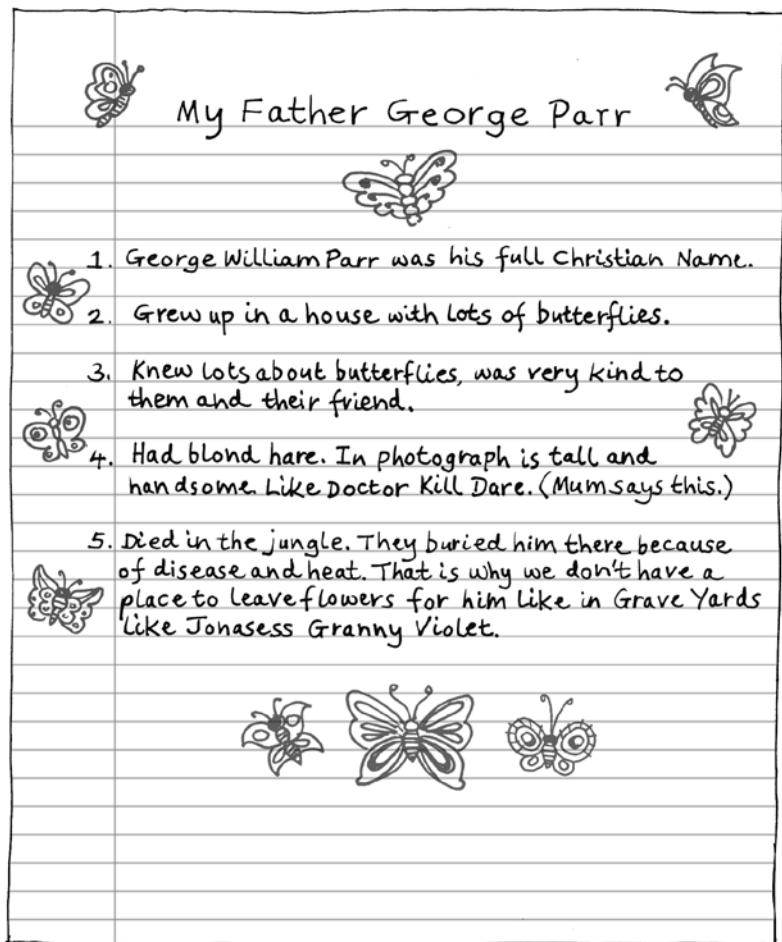 My Father George Parr
1. George William Parr was his full Christian Name.
2. Grew up in a house with lots of butterflies.
3. Knew lots about butterflies, was very kind to
them and their friend.
4. Had blond hare. In photograph is tall and
handsome like Doctor Kill Dare. (Mum says this.)
5. Died in the jungle. They buried him there because
of disease and heat. That is why we don't have a
place to leave flowers for him like in Grave Yards
like Jonasess Granny Violet.